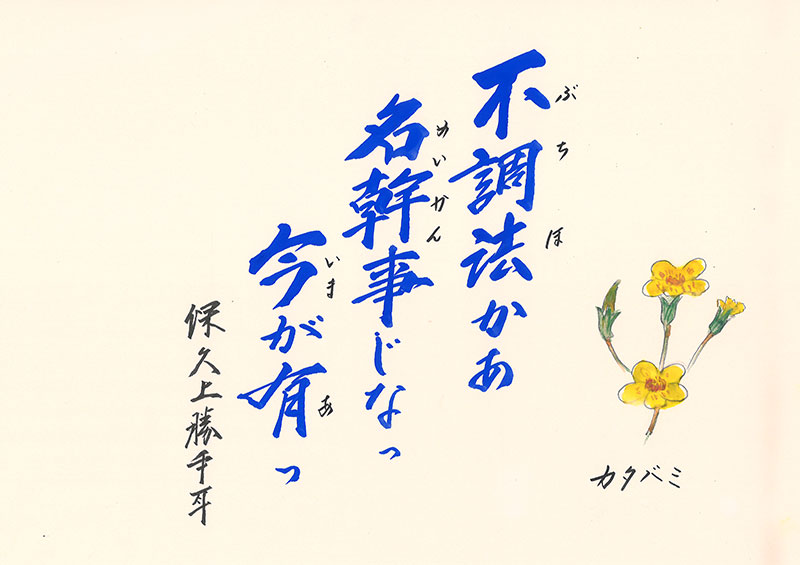 不調法かあ
ぶちほ
名幹事じなっ
めいかん
今が有っ
いま あ
保久上勝
カタバミ